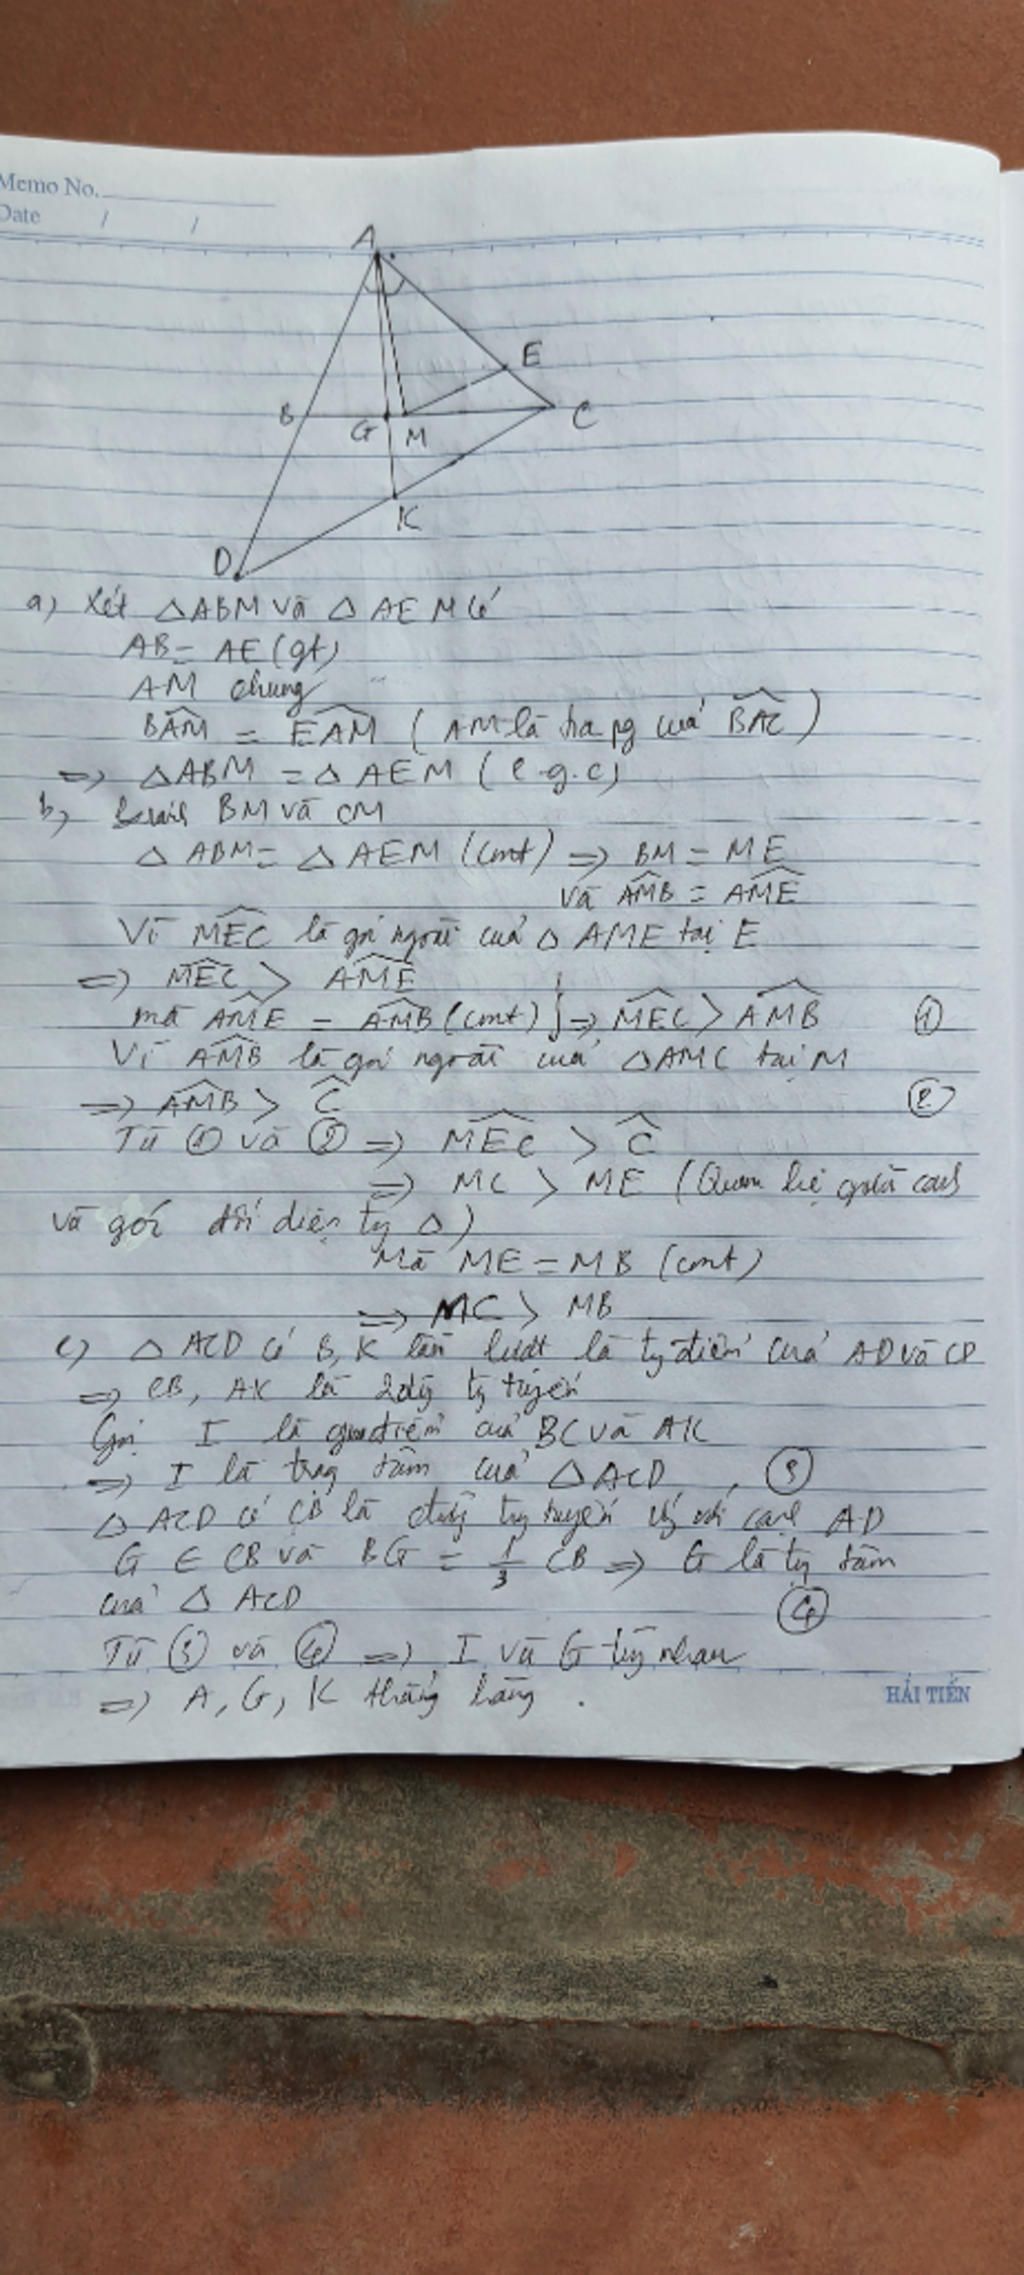 Memo No.
Date / /
A
E
B
G
M
C
K
D
a) Xét △ABM và △AEM có
AB = AE (gt)
AM chung
BAM^ = EAM^ (AM là tia pg của BAC^)
=> △ABM = △AEM (c.g.c)
b) BM và CM
△ABM = △AEM (cmt) => BM = ME
và AMB^ = AME^
Vì MEC^ là góc ngoài của △AME tại E
=> MEC^ > AME^
mà AME^ = AMB^ (cmt) } => MEC^ > AMB^ ①
Vì AMB^ là góc ngoài của △AMC tại M
=> AMB^ > C^ ②
Từ ① và ② => MEC^ > C^
=> MC > ME (Quan hệ giữa cạnh
và góc đối diện tg △)
Mà ME = MB (cmt)
=> MC > MB
c) △ACD có B, K lần lượt là tg điểm của AD và CD
=> CB, AK là 2 đg tg tuyến
Gọi I là giao điểm của BC và AK
=> I là trọg tâm của △ACD ③
△ACD có CB là đườg tg tuyến ứg với cạnh AD
G ∈ CB và BG = 1/3 CB => G là tg tâm
của △ACD ④
Từ ③ và ④ => I và G tùg nhau
=> A, G, K thẳng hàng.
HẢI TIẾN